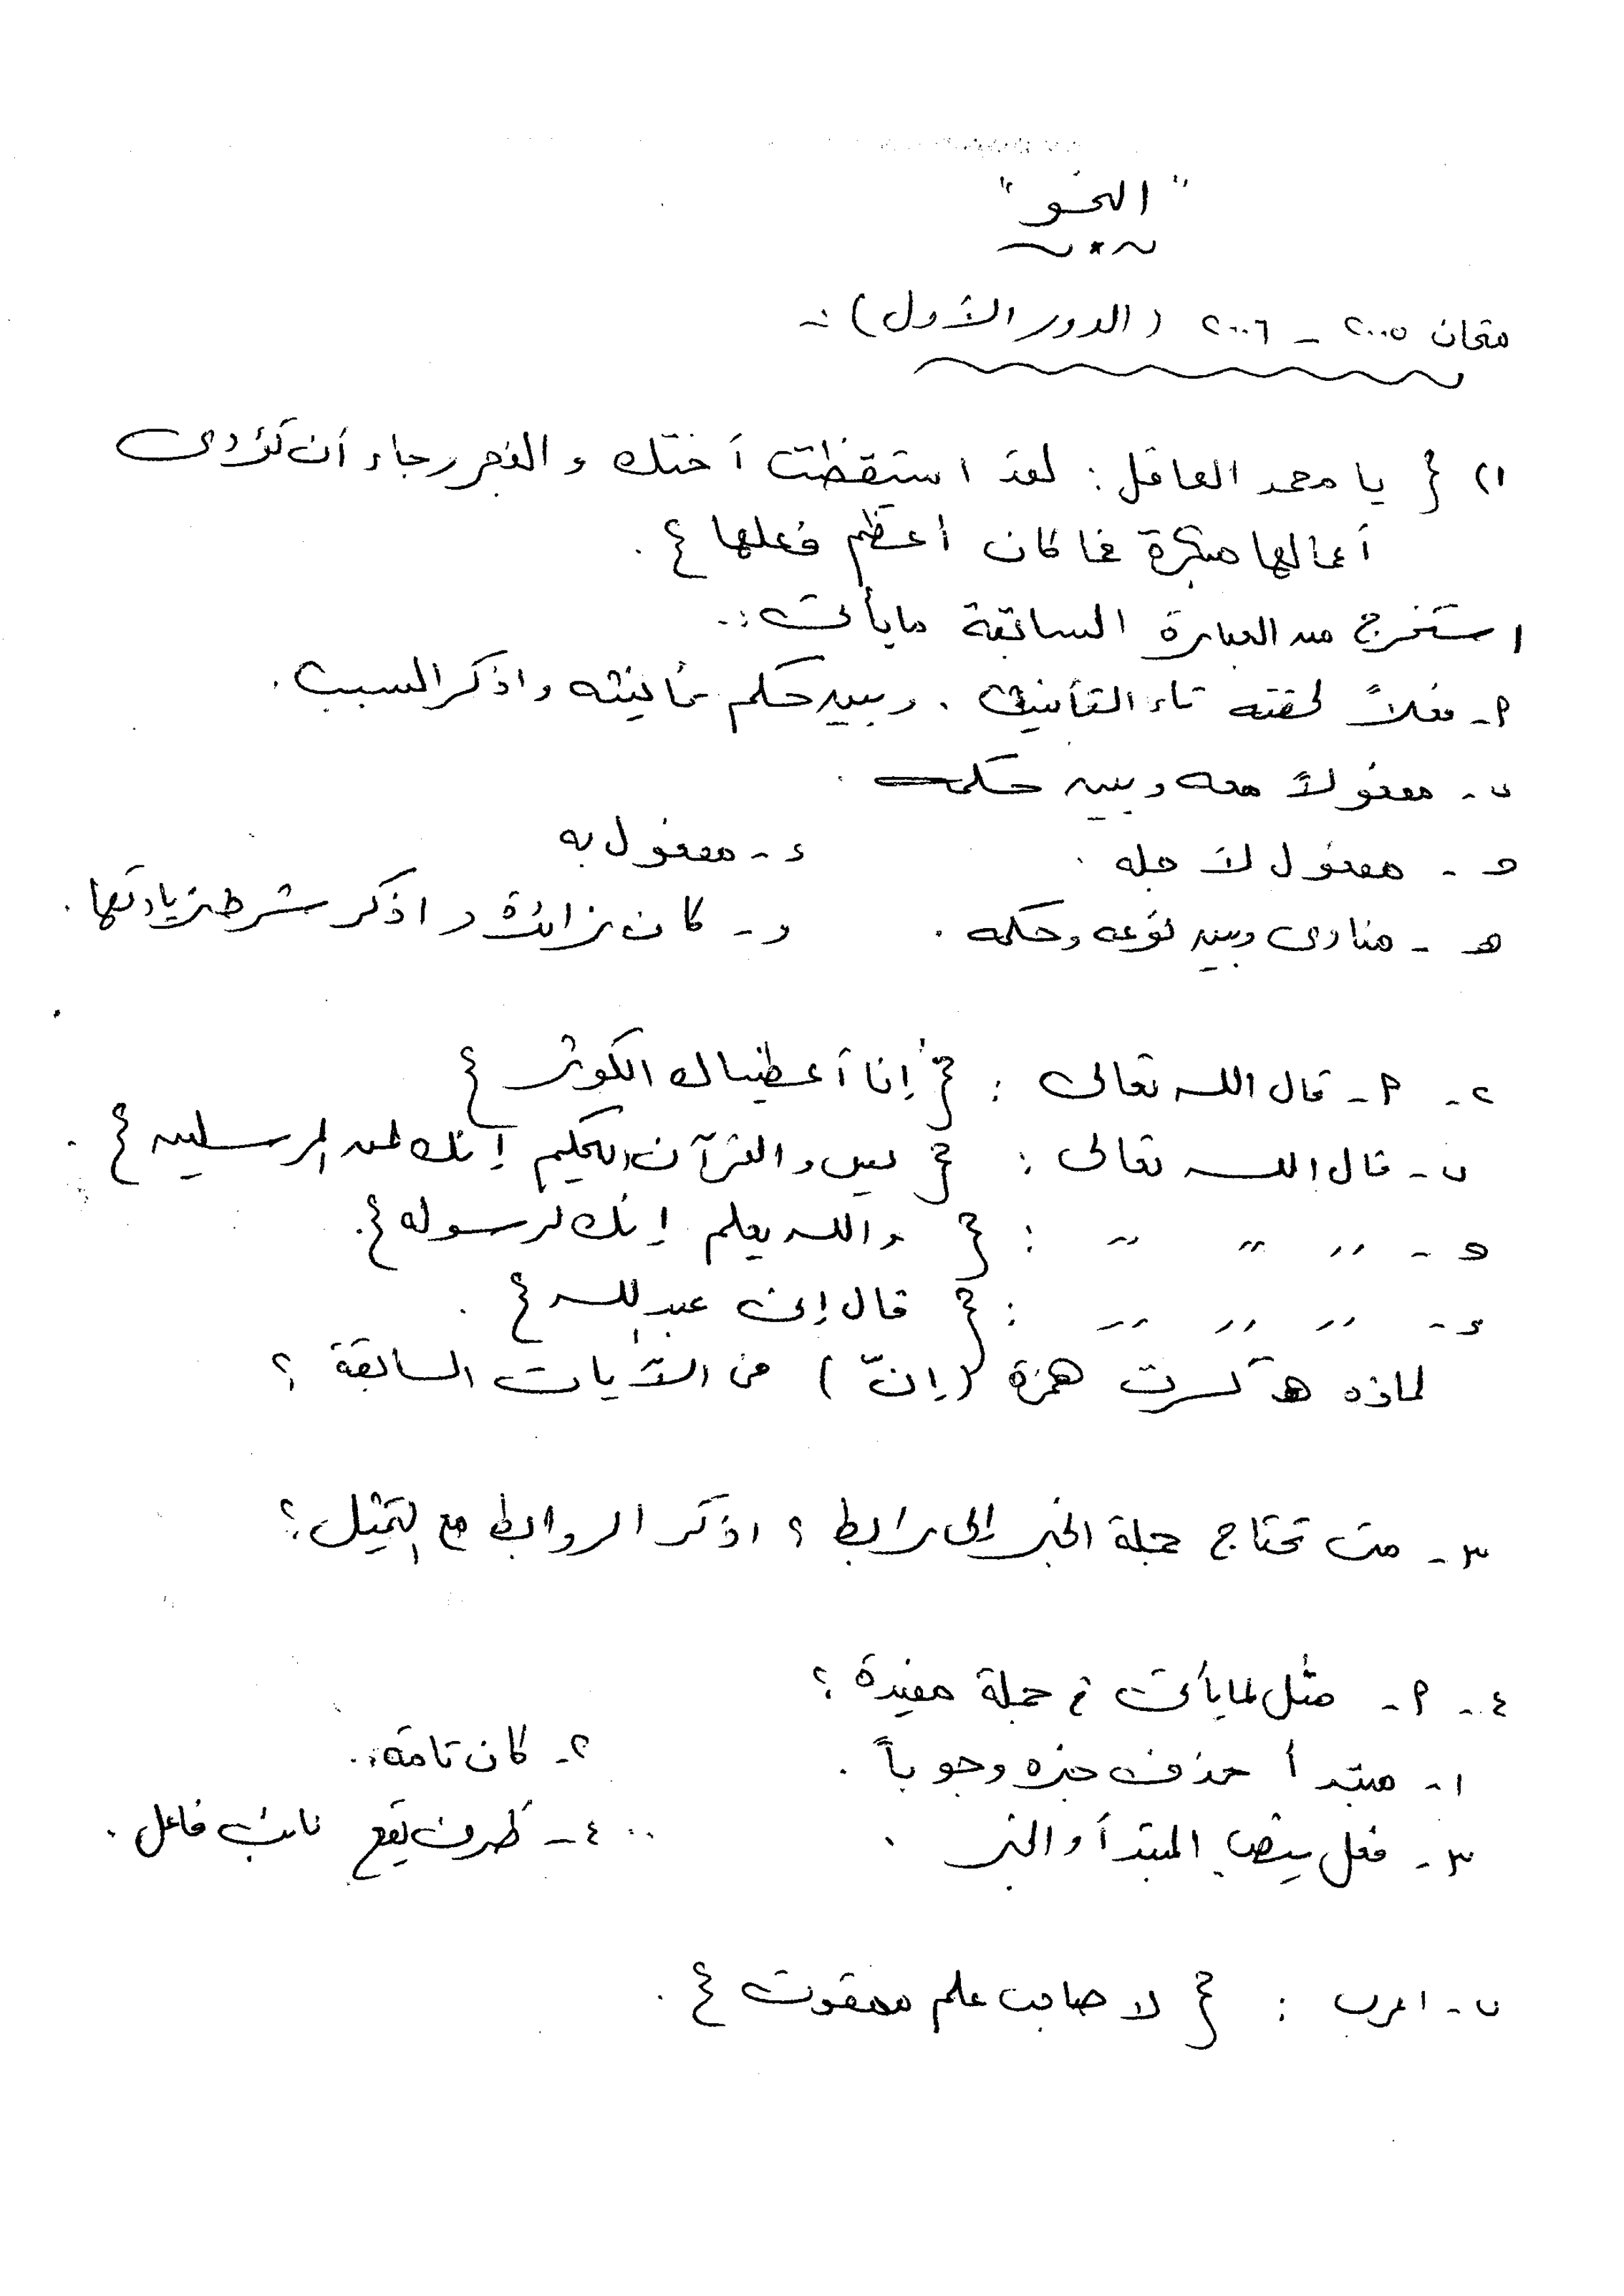 " النحو "
متحان ٢٠٠٥ - ٢٠٠٦ ( الدور الأول ) :-
١) { يا محمد العاقل : لقد استيقظت أختك والفجر رجاء أن تؤدى
أعمالها مبكرة فما كان أعظم فعلها } .
استخرج من العبارة السابقة ما يأتى :-
أ - فعلاً لحقته تاء التأنيث . وبين حكم تأنيثه واذكر السبب .
ب - مفعولاً معه وبين حكمه .
ج - مفعول لأجله . د - مفعول به
هـ - منادى وبين نوعه وحكمه . و - كان زائدة واذكر شرط زيادتها .
٢ - أ - قال الله تعالى : { إنا أعطيناك الكوثر }
ب - قال الله تعالى : { يس والقرآن الحكيم إنك لمن المرسلين } .
ج - ,, ,, ,, : { والله يعلم إنك لرسوله } .
د - ,, ,, ,, : { قال إنى عبد الله } .
لماذه كسرت همزة ( إنّ ) فى الآيات السابقة ؟
٣ - متى تحتاج جملة الخبر إلى رابط ؟ اذكر الروابط مع التمثيل ؟
٤ - أ - مثل لما يأتى فى جملة مفيدة ؟
١ - مبتدأ حذف خبره وجوباً . ٢ - كان تامة .
٣ - فعل ينصب المبتدأ والخبر . ٤ - ظرف يقع نائب فاعل .
ب - اعرب : { لا صاحب علم ممقوت } .